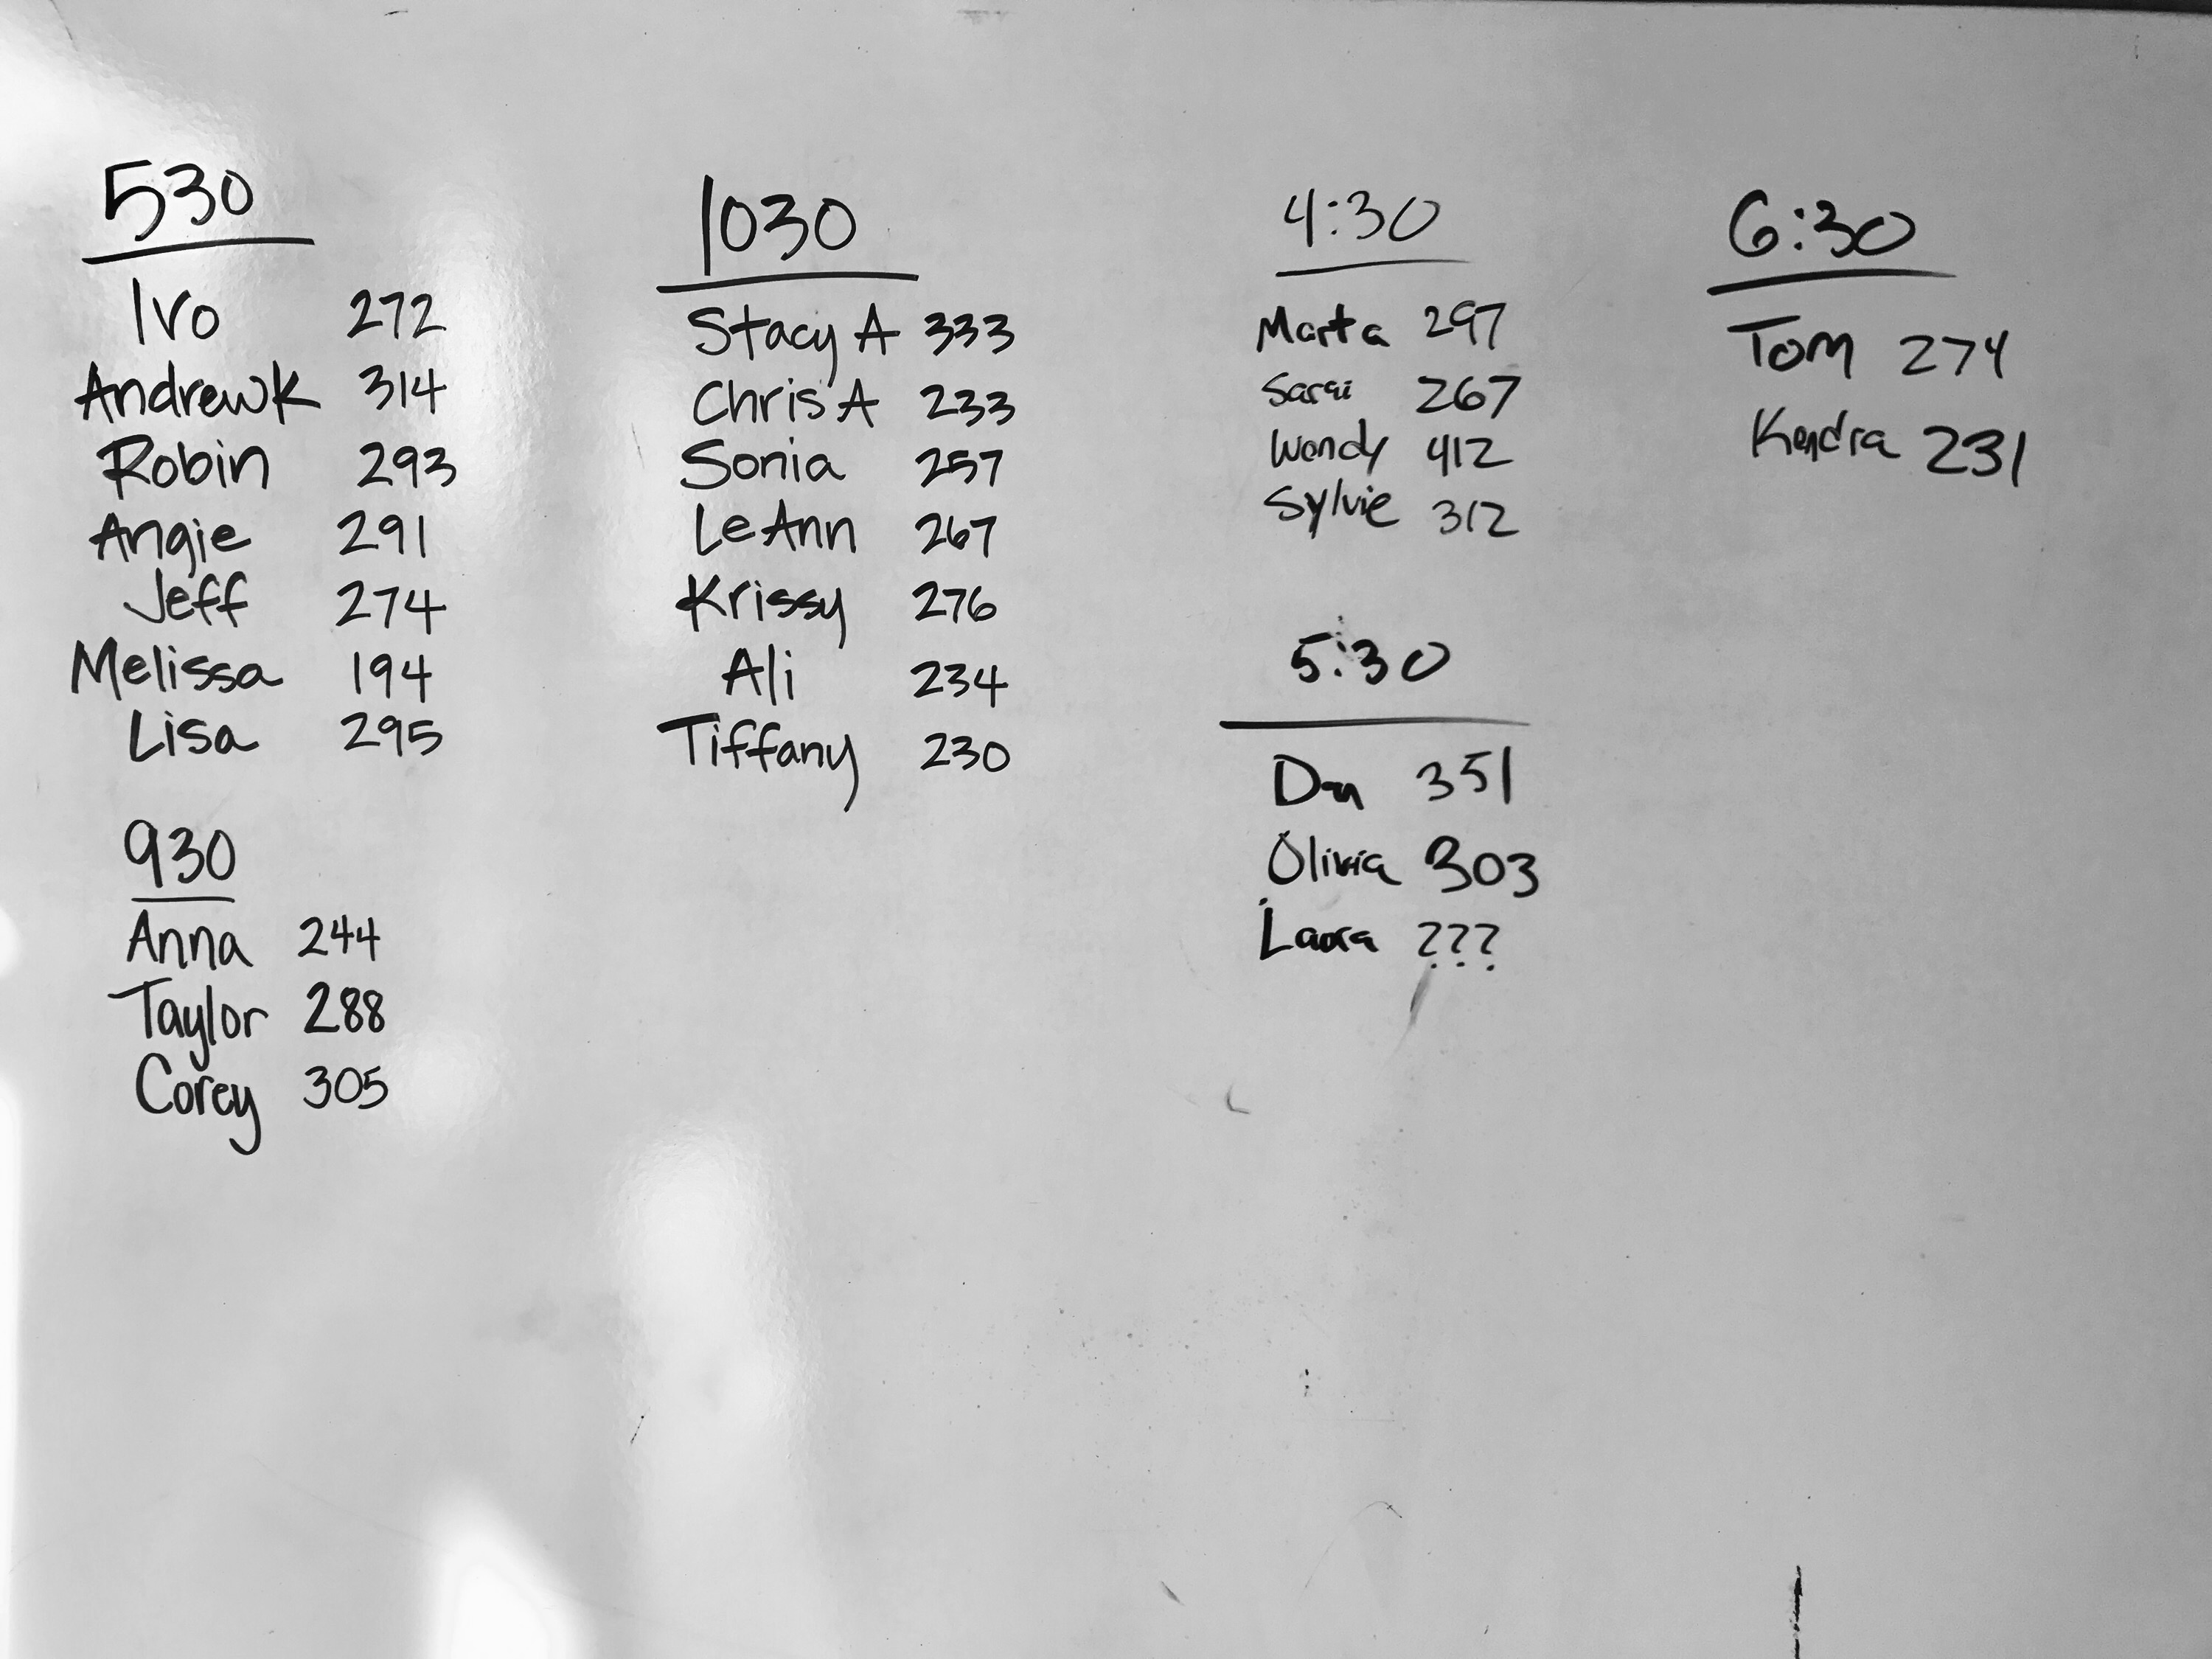 530
Ivo 272
Andrew K 314
Robin 293
Angie 291
Jeff 274
Melissa 194
Lisa 295
930
Anna 244
Taylor 288
Corey 305
1030
Stacy A 333
Chris A 233
Sonia 257
LeAnn 267
Krissy 276
Ali 234
Tiffany 230
4:30
Marta 297
Sarai 267
Wendy 412
Sylvie 312
5:30
Dan 351
Olivia 303
Laura ???
6:30
Tom 274
Kendra 231